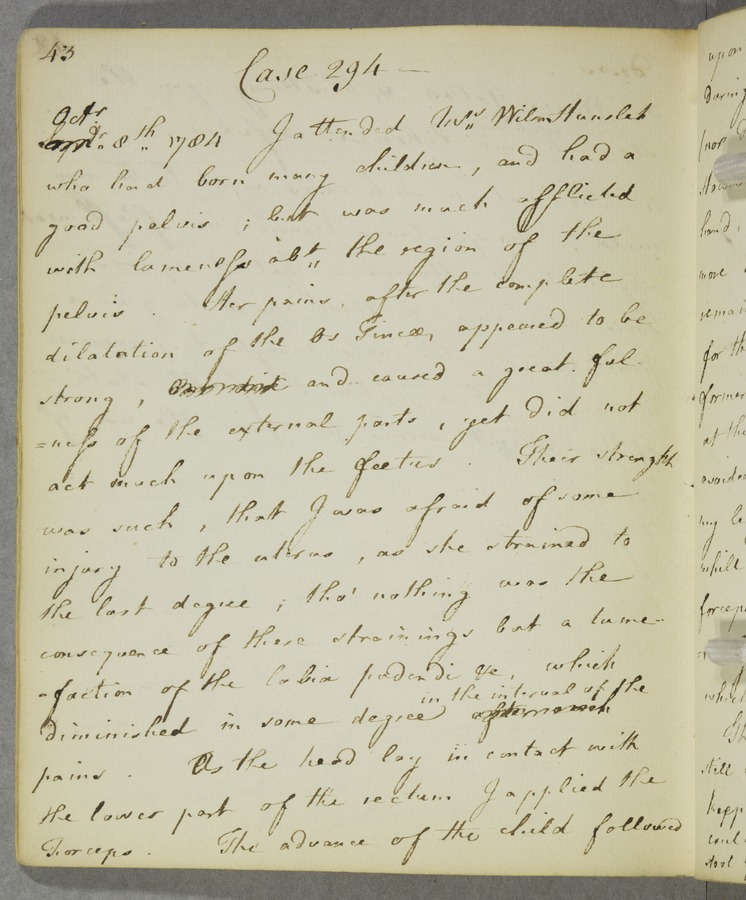 43
Case 294 —
Octr
8th 1784 I attended Mrs
who had born many children, and had a
good pelvis ; but was much afflicted
with lameness abt,, the region of the
pelvis . Her pains, after the complete
dilatation of the Os Tincæ, appeared to be
strong , and caused a great ful-
=ness of the external parts , yet did not
act much upon the foetus . Their strenght
was such , that I was afraid of some
injury to the uterus , as she strained to
the last degree ; tho' nothing was the
consequence of these strainings but a tume-
-faction of the labia pudendi &c, which
in the interval of the
diminished in some degree
pains . As the head lay in contact with
the lower part of the rectum I applied the
Forceps . The advance of the child followed
upon
during
hand,
more
remain
for th
former
at the
avoided
my
while
forceps
which
still
happ